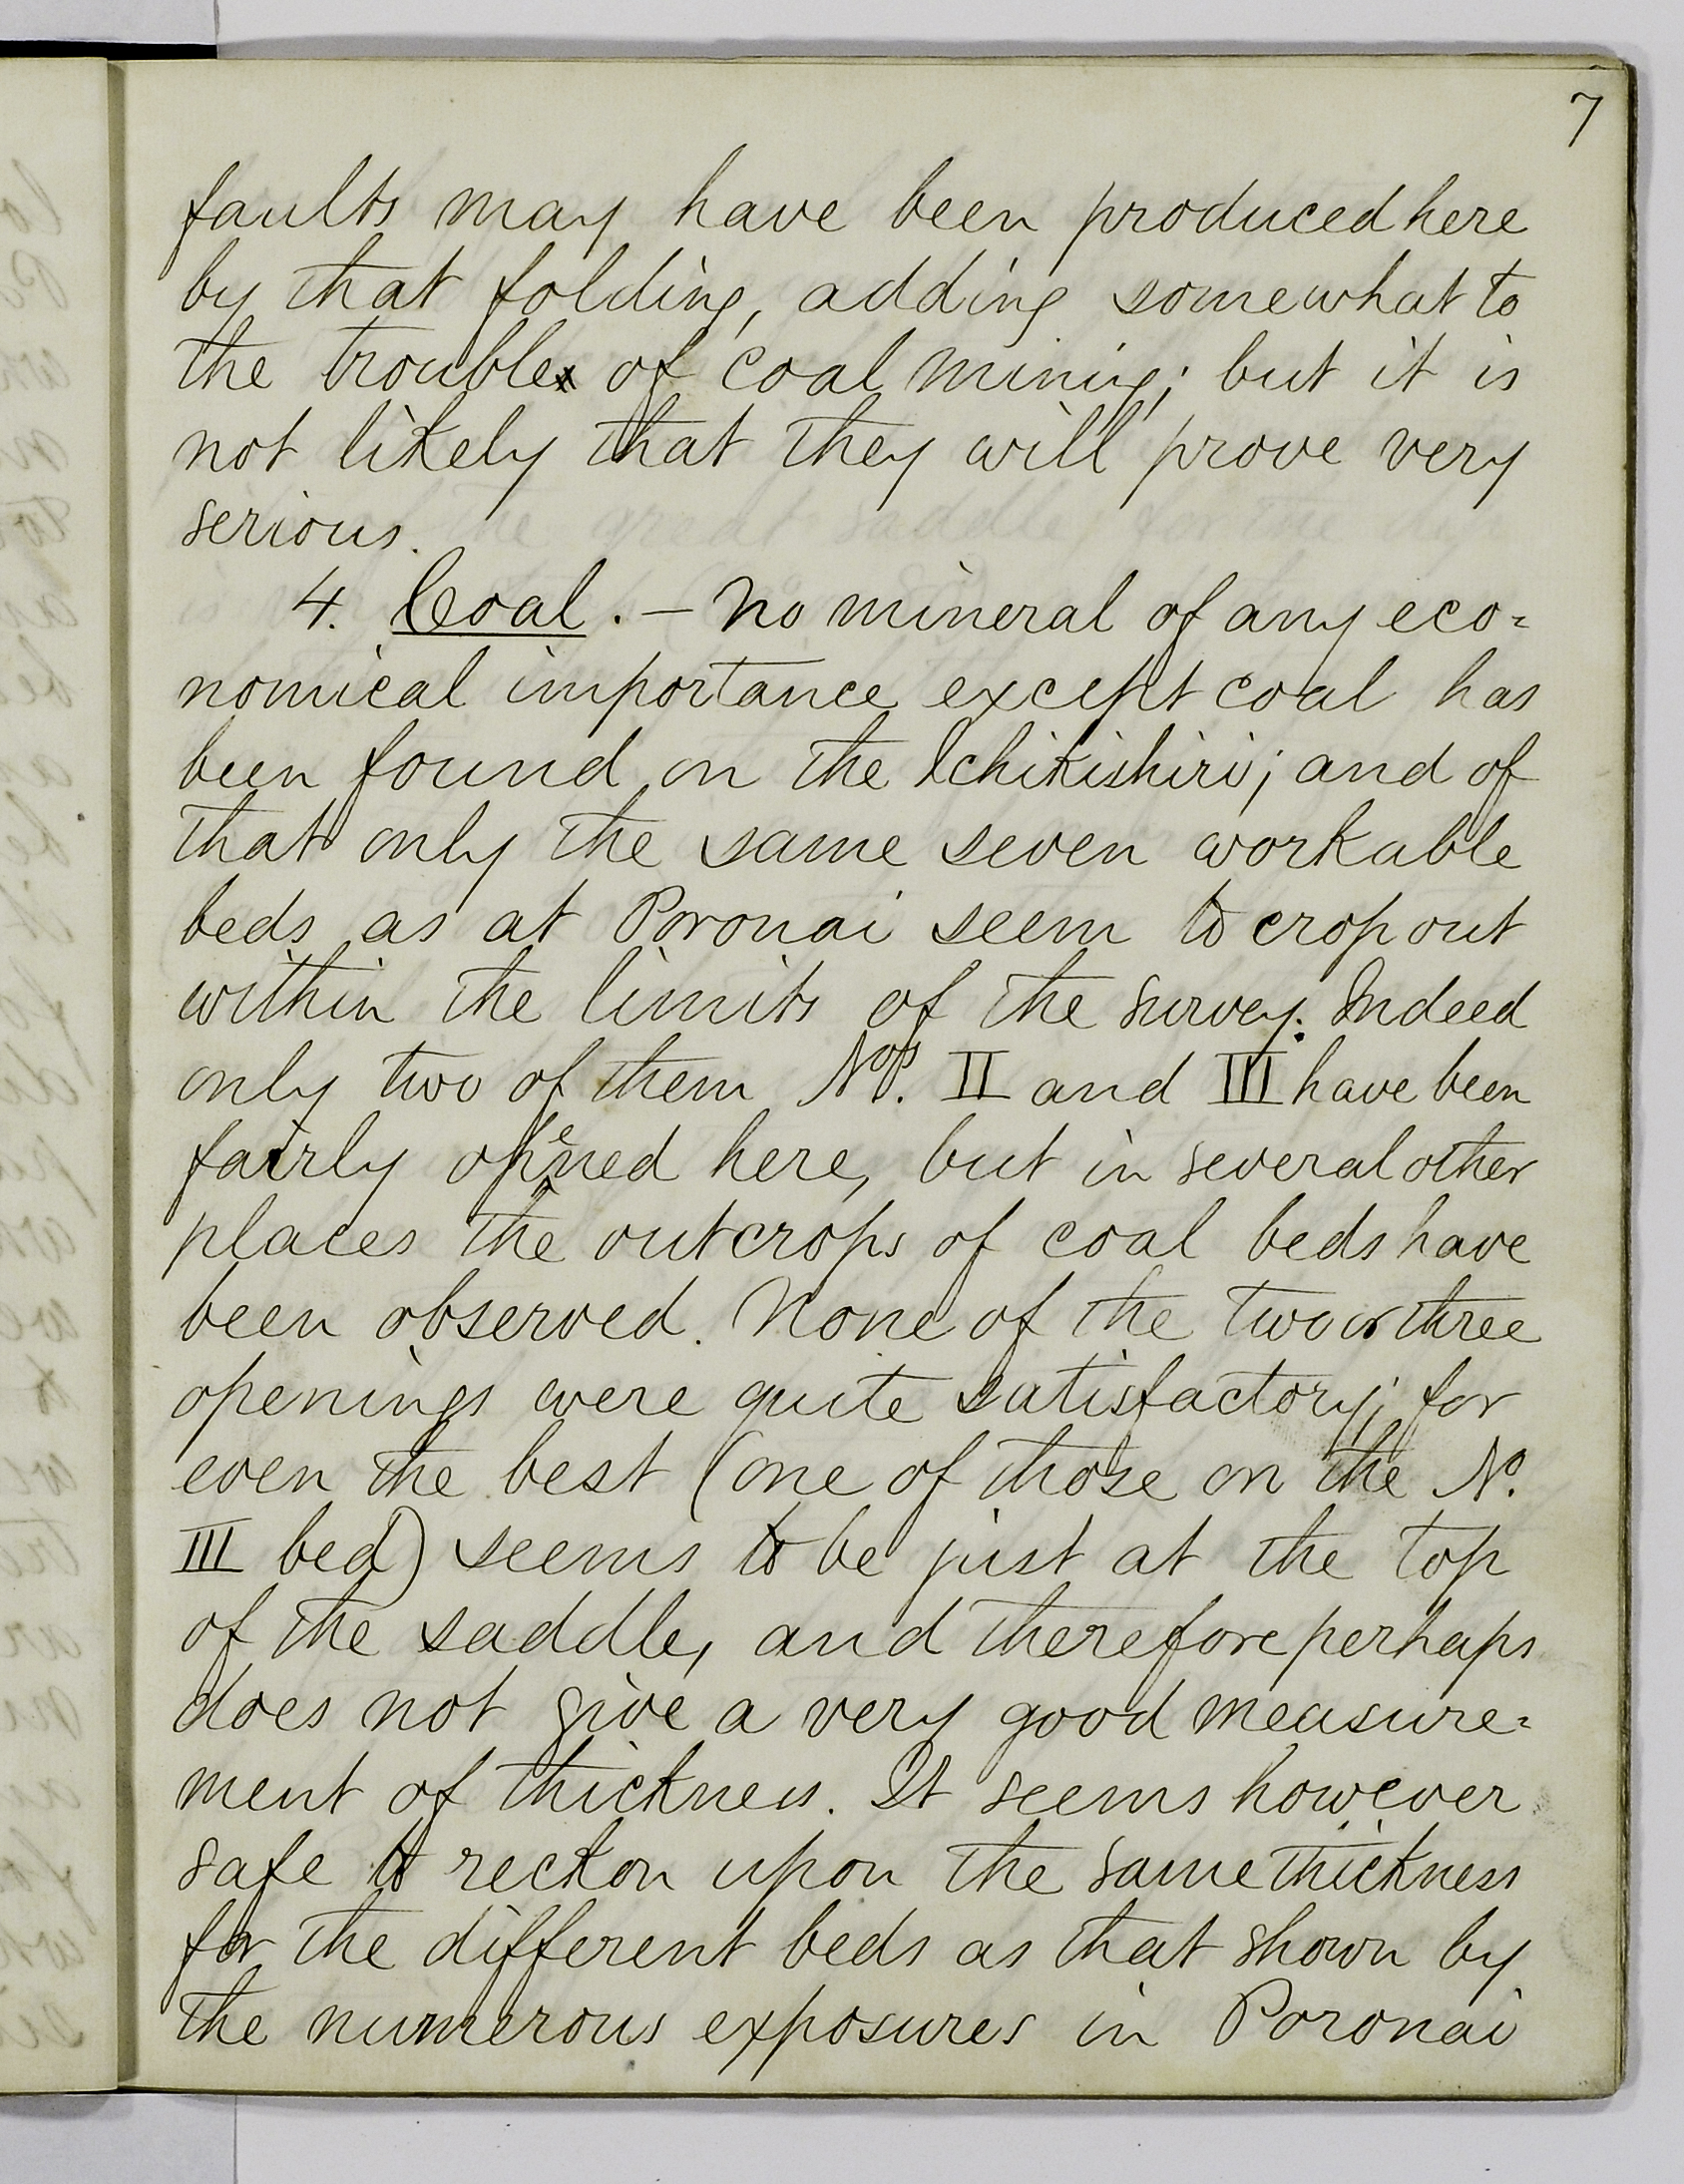 7
faults may have been produced here
by that folding, adding somewhat to
the trouble of coal mining; but it is
not likely that they will prove very
serious.
4. Coal. — No mineral of any eco=
nomical importance except coal has
been found on the Ichikishiri; and of
that only the same seven workable
beds as at Poronai seem to crop out
within the limits of the survey. Indeed
only two of them Nos. II and III have been
fairly opened here, but in several other
places the outcrops of coal beds have
been observed. None of the two or three
openings were quite satisfactory; for
even the best (one of those on the No.
III bed) seems to be just at the top
of the saddle, and therefore perhaps
does not give a very good measure=
ment of thickness. It seems however
safe to reckon upon the same thickness
for the different beds as that shown by
the numerous exposures in Poronai